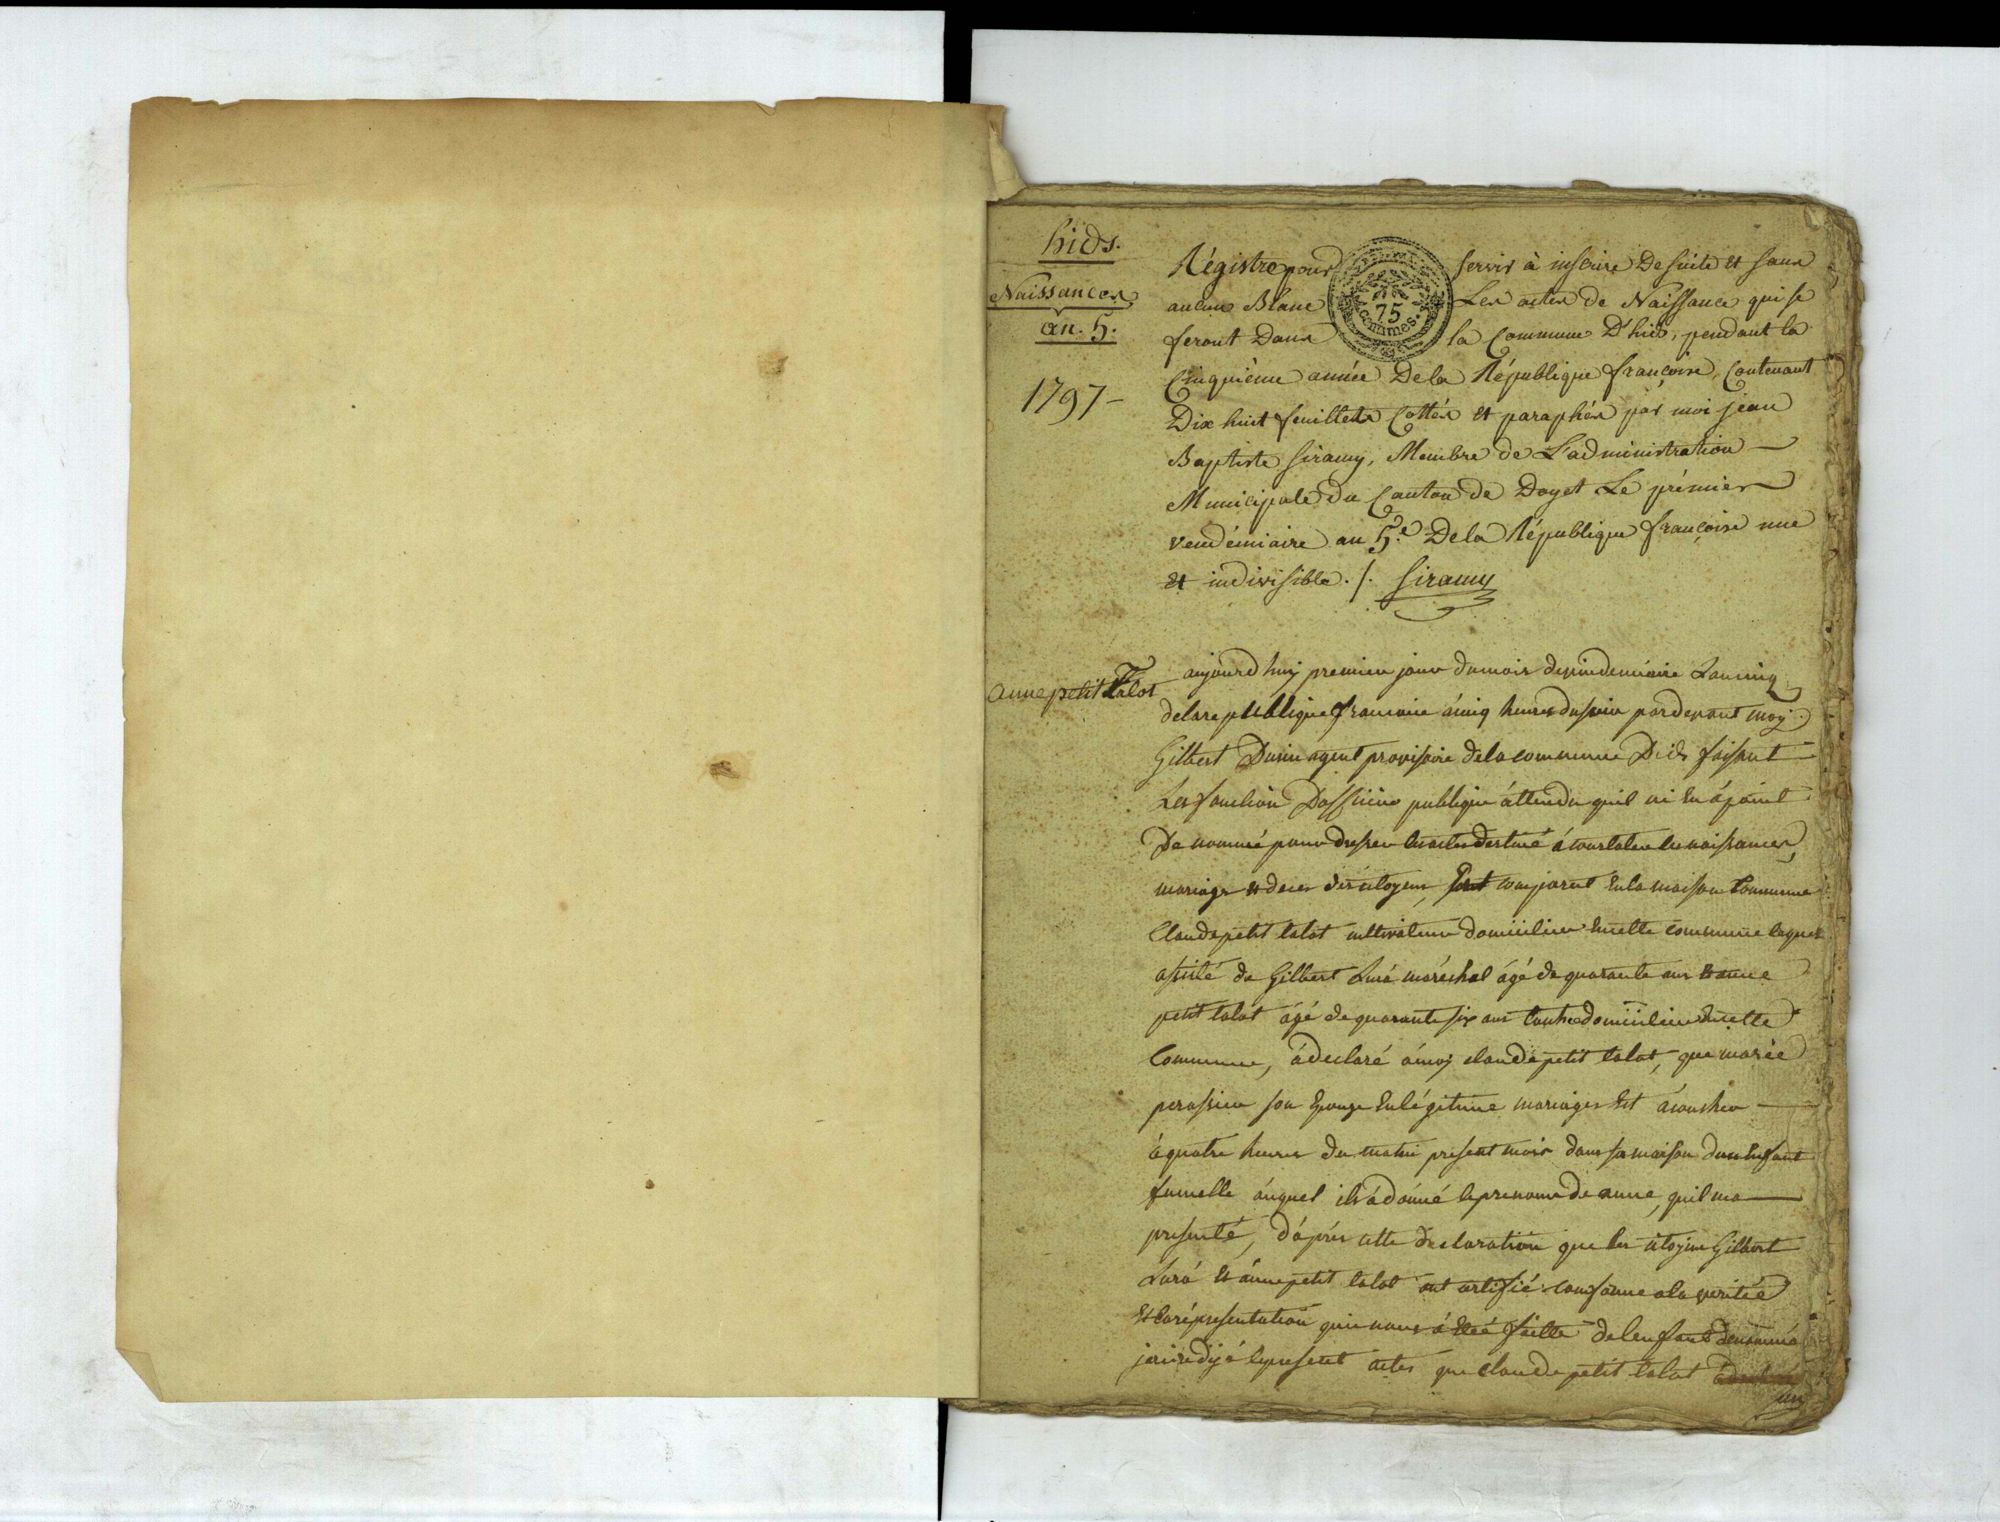 hids.
Naissances
an. 5.
1797-
Régistre pour servir à inscrire De suite et sans
aucun Blanc Les actes de Naissance qui se
feront Dans la Commune D'hids, pendant la
Cinquième année De la République françoise, Contenant
Dix huit feuillets Cottés et paraphés par moi jean
Baptiste Siramy, Membre de L'administration
Municipale du Canton de Doyet Le prémier
vendémiaire an 5.e De la République françoise une
et indivisible ./. Siramy
75
centimes.
anne petit Talot
aujourd huy premier jour du mois de vindemiaire Lan cinq
de la republique francoise á cinq heures du soir par devant moy
Gilbert agent provisoire de la commune Dids faisant
Les fonction Dofficier publique áttendu quil ni en á point
De nommé pour dresser les actes destiné á constater les naissances,
mariage et deces des citoyens, comparut en la maison Commune
Claude petit talot cultivateur domicilier en cette commune lequel
assisté de Gilbert maréchal ágé de quarante ans et anne
petit talot ágé de quarante six ans domicilier en cette
Commune, á declaré á moy claude petit talot, que marie
son Epouze en légitime mariage Est acoucher
á quatre heures du matin present mois dans sa maison dun enfant
fumelle auquel il á donné le prenom de anne, quil ma
presenté, dáprés cette declaration que les citoyens Gilbert
et ánne petit talot ont certifié conforme a la veritée
Et la répresentation qui nous á Eteé faitte de lenfant denommé
jai redijé le present actes que claude petit talot